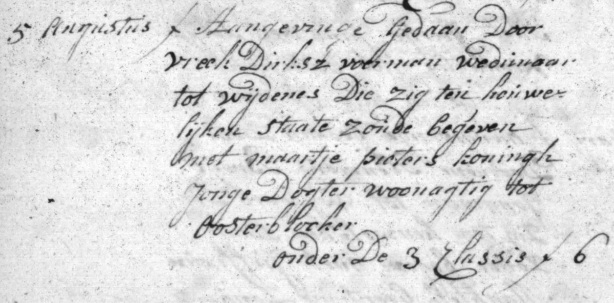 5 Angustus f Aangevinge Gedaan Door
vreek Dirksz voerman wedunaar
tot wijdenes Die zig ten houwe-
lijken staate zoude begeven
met maartje pieters koningh
Jonge Dogter woonagtig tot
Oosterblocker
onder De 3 Classis f 6